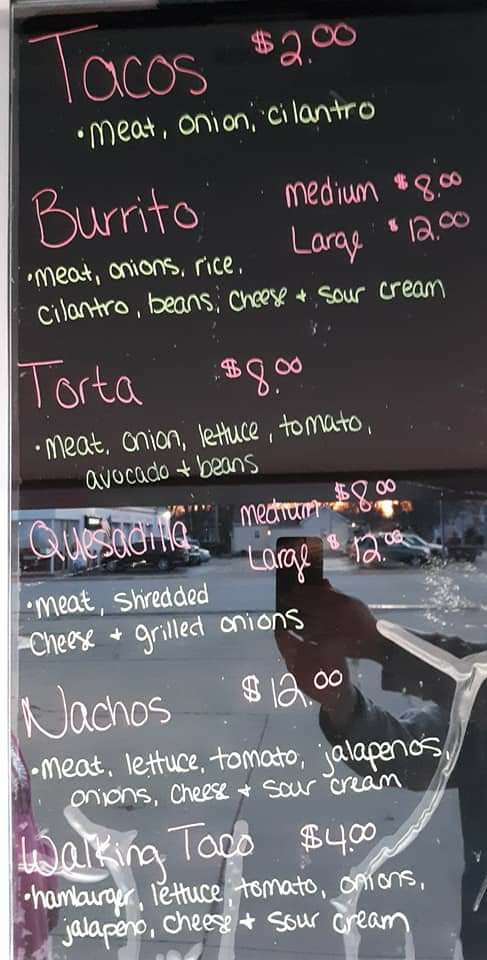 Tacos $2.00
•meat, onion, cilantro
Burrito medium $8.00
Large $12.00
•meat, onions, rice,
cilantro, beans, cheese + sour cream
Torta $8.00
•meat, onion, lettuce, tomato,
avocado + beans
Quesadilla medium $8.00
Large $12.00
•meat, shredded
cheese + grilled onions
Nachos $12.00
•meat, lettuce, tomato, jalapenos,
onions, cheese + sour cream
Walking Taco $4.00
•hamburger, lettuce, tomato, onions,
jalapeno, cheese + sour cream